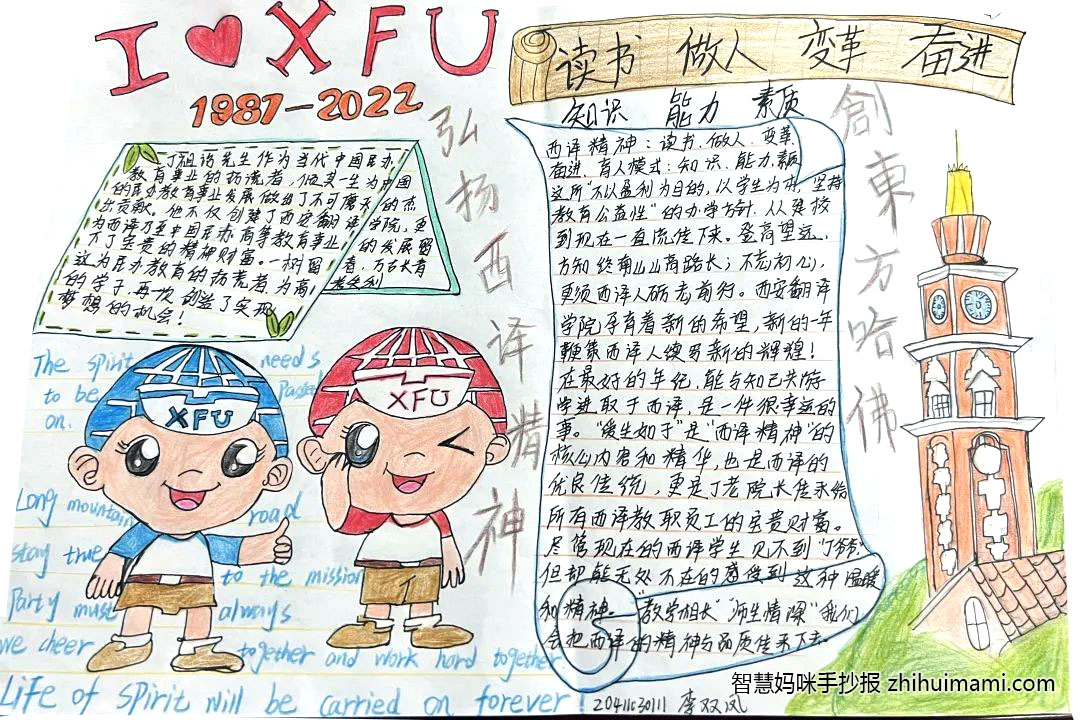 I ❤ XFU
1987-2022
读书 做人 变革 奋进
知识 能力 素质
弘扬西译精神
創東方哈佛
丁祖诒先生作为当代中国民办
教育事业的拓荒者,他其一生为中国
的民办教育事业发展做出了不可磨灭的杰
出贡献。他不仅创建了西安翻译学院,更
为西译乃至中国民办高等教育事业的发展留
下了宝贵的精神财富。一树图者,万古长青
这为民办教育的拓荒者为高
的学子再次创造了实现
梦想的机会!
西译精神:读书、做人、变革、
奋进,育人模式:知识、能力、素质
这所"不以盈利为目的,以学生为本,坚持
教育公益性"的办学方针,从建校
到现在一直流传下来。登高望远,
方知终南山山高路长;不忘初心,
更须西译人砺志前行。西安翻译
学院孕育着新的希望,新的一年
鞭策西译人续写新的辉煌!
在最好的年纪,能与知己共游
学进取于西译,是一件很幸运的
事。"爱生如子"是"西译精神"的
核心内容和精华,也是西译的
优良传统,更是丁老院长传承给
所有西译教职员工的宝贵财富。
尽管现在的西译学生见不到"丁爷爷"
但却能无处不在的感受到这种温暖
和精神。"教学相长""师生情深"我们
会把西译的精神与品质传承下去。
The spirit needs
to be Passed
on.
XFU
XFU
Long mountain road
stay true to the mission
Party must always
we cheer together and work hard together.
Life of spirit will be carried on forever!
20411630111 李双凤
智慧妈咪手抄报 zhihuimami.com